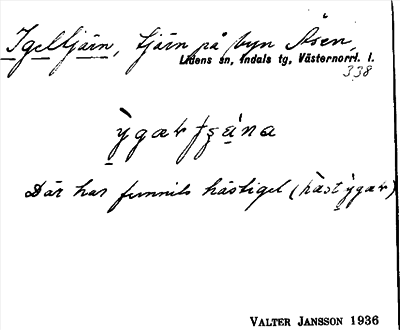 Igeltjärn, tjärn på byn Åsen,
Lidens sn, Indals tg, Västernorrl. l.
338
Där har funnits hästigel (
VALTER JANSSON 1936